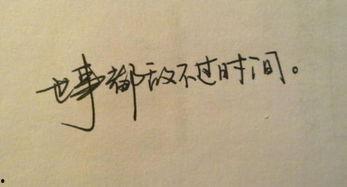 世事都敌不过时间。